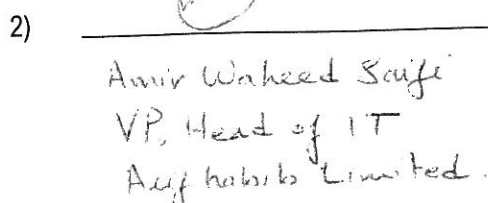 2)
Amir Waheed Saifi
VP, Head of IT
Arif habib Limited.